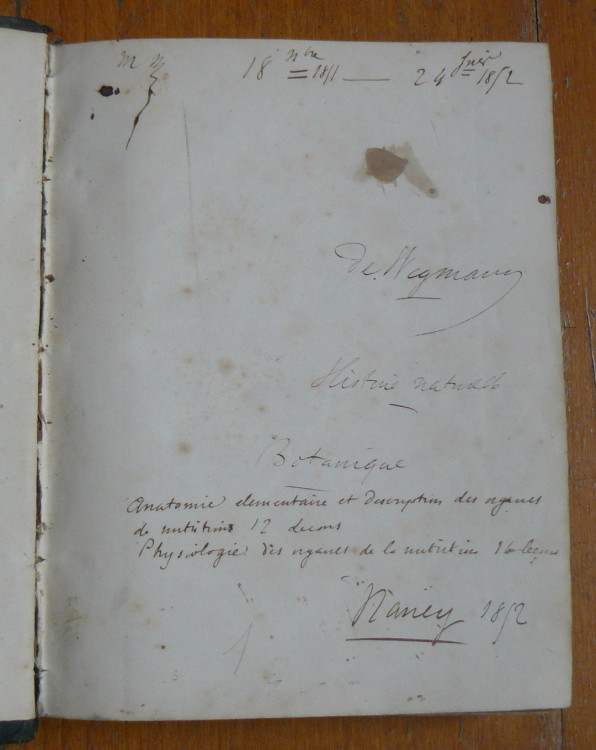 18 9bre 1851 — 24 Juin 1852
De Wegmann
Histoire naturelle
Botanique
Anatomie elementaire et description des organes
de nutritions 12 lecons
Physiologie des organes de la nutrition 16 leçons
Nancy 1852